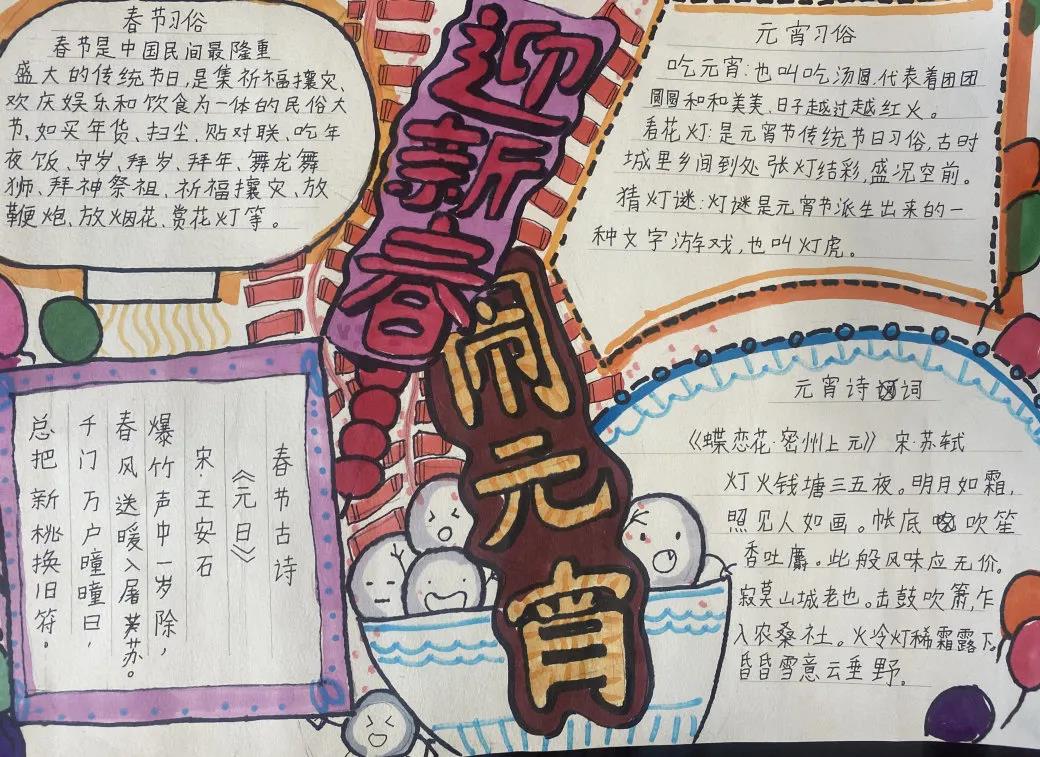 春节习俗
春节是中国民间最隆重
盛大的传统节日,是集祈福攘灾、
欢庆娱乐和饮食为一体的民俗大
节,如买年货、扫尘、贴对联、吃年
夜饭、守岁、拜岁、拜年、舞龙舞
狮、拜神祭祖、祈福攘灾、放
鞭炮、放烟花、赏花灯等。
迎新春
闹元宵
元宵习俗
吃元宵:也叫吃汤圆.代表着团团
圆圆和和美美、日子越过越红火。
看花灯:是元宵节传统节日习俗,古时
城里乡间到处张灯结彩,盛况空前。
猜灯谜:灯谜是元宵节派生出来的一
种文字游戏,也叫灯虎。
春节古诗
《元日》
宋·王安石
爆竹声中一岁除,
春风送暖入屠苏。
千门万户曈曈日,
总把新桃换旧符。
元宵诗词
《蝶恋花·密州上元》 宋·苏轼
灯火钱塘三五夜。明月如霜,
照见人如画。帐底吹笙
香吐麝。此般风味应无价。
寂寞山城老也。击鼓吹箫,乍
入农桑社。火冷灯稀霜露下。
昏昏雪意云垂野。